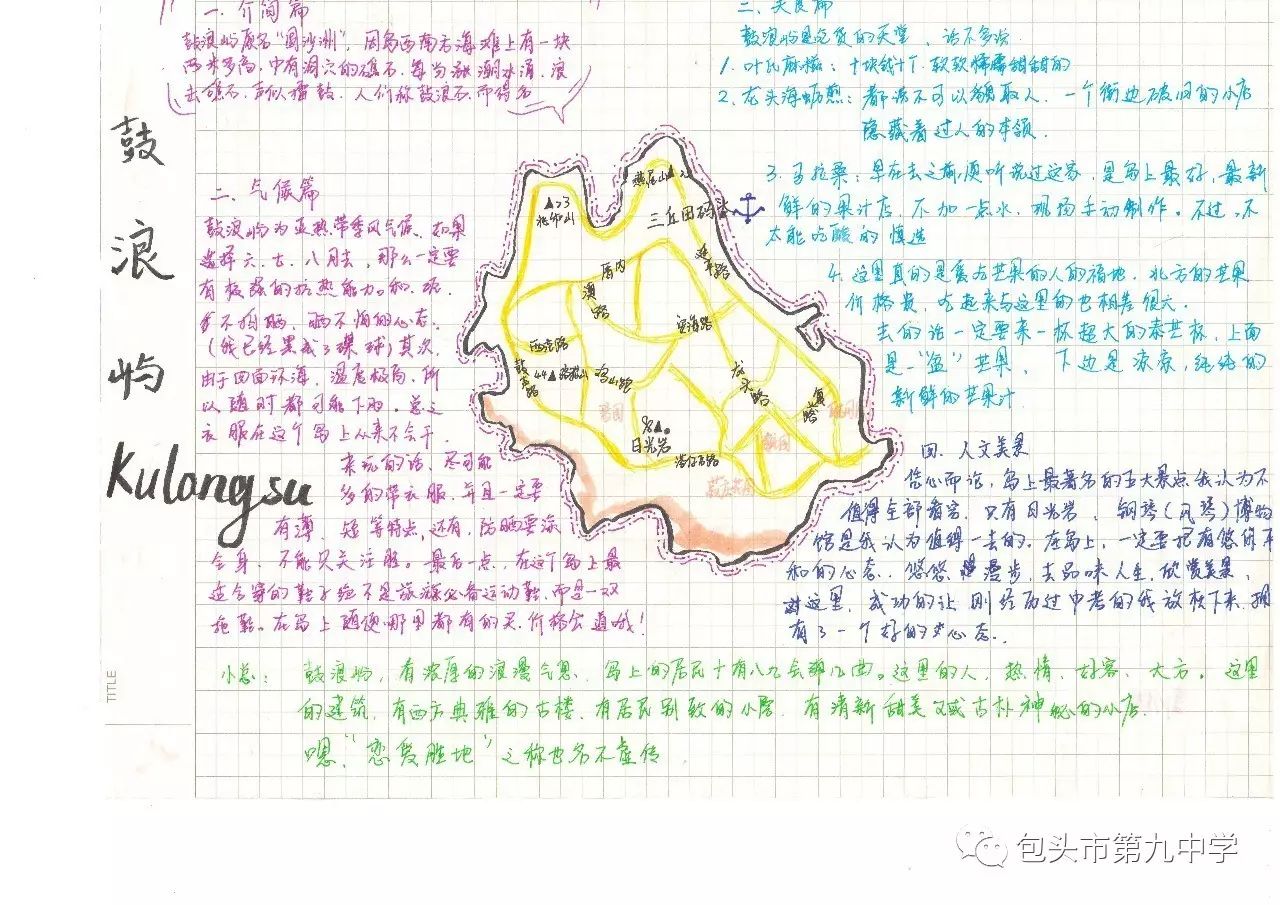 鼓
浪
屿
Kulangsu
一、介简篇
鼓浪屿原名"圆沙洲"，因岛西南方海滩上有一块
两米多高，中有洞穴的礁石，每当涨潮水涌，浪
击礁石，声似擂鼓，人们称鼓浪石，而得名
二、气候篇
鼓浪屿为亚热带季风气候、如果
选择六、七、八月去，那么一定要
有极强的抗热能力。和
不怕晒，晒不怕的心态，
(我已经黑成了煤球)其次，
由于四面环海，湿度极高，所
以随时都可能下雨。总之
衣服在这个岛上从来不会干，
来玩的话，尽可能
多的带衣服，并且一定要
有薄、短等特点，还有，防晒要涂
全身，不能只关注脸。最后一点，在这个岛上最
适合穿的鞋子绝不是旅游必备运动鞋，而是一双
拖鞋。在岛上随便哪里都有的买，价格公道哦！
三、美食篇
鼓浪屿是吃货的天堂，话不多说
1. 叶氏麻糍：十块钱十个，软软糯糯甜甜的
2. 龙头海蛎煎：都说不可以貌取人，一个街边破旧的小店
隐藏着过人的本领．
3. 马拉桑：早在去之前便听说过这家，是岛上最好，最新
鲜的果汁店，不加一点水，现场手动制作。不过，不
太能吃酸的慎选
4. 这里真的是喜吃芒果的人的福地．北方的芒果
价格贵，吃起来与这里的也相差很大．
去的话一定要来一杯超大的泰芒杯，上面
是"盆"芒果，下边是凉凉，纯纯的
新鲜的芒果汁．
四、人文美景
凭心而论，岛上最著名的五大景点我认为不
值得全部看完，只有日光岩、钢琴(风琴)博物
馆是我认为值得一去的．在岛上，一定要记有悠闲平
和的心态．悠悠漫步，去品味人生，欣赏美景，
这里，成功的让刚经历过中考的我放松下来，拥
有了一个好的心态．
燕尾山▲
▲23
兆和山
三丘田码头
延平路
厝内
澳路
安海路
西沧路
鼓声路
44▲
鸡山路
龙头路
复兴路
日光岩
港仔后路
小总：鼓浪屿，有浓厚的浪漫气息，岛上的居民十有八九会弹几曲。这里的人，热情，好客，大方。这里
的建筑，有西方典雅的古楼，有居民别致的小屋，有清新甜美又或古朴神秘的小店．
嗯，"恋爱胜地"之称也名不虚传．
TITLE
包头市第九中学